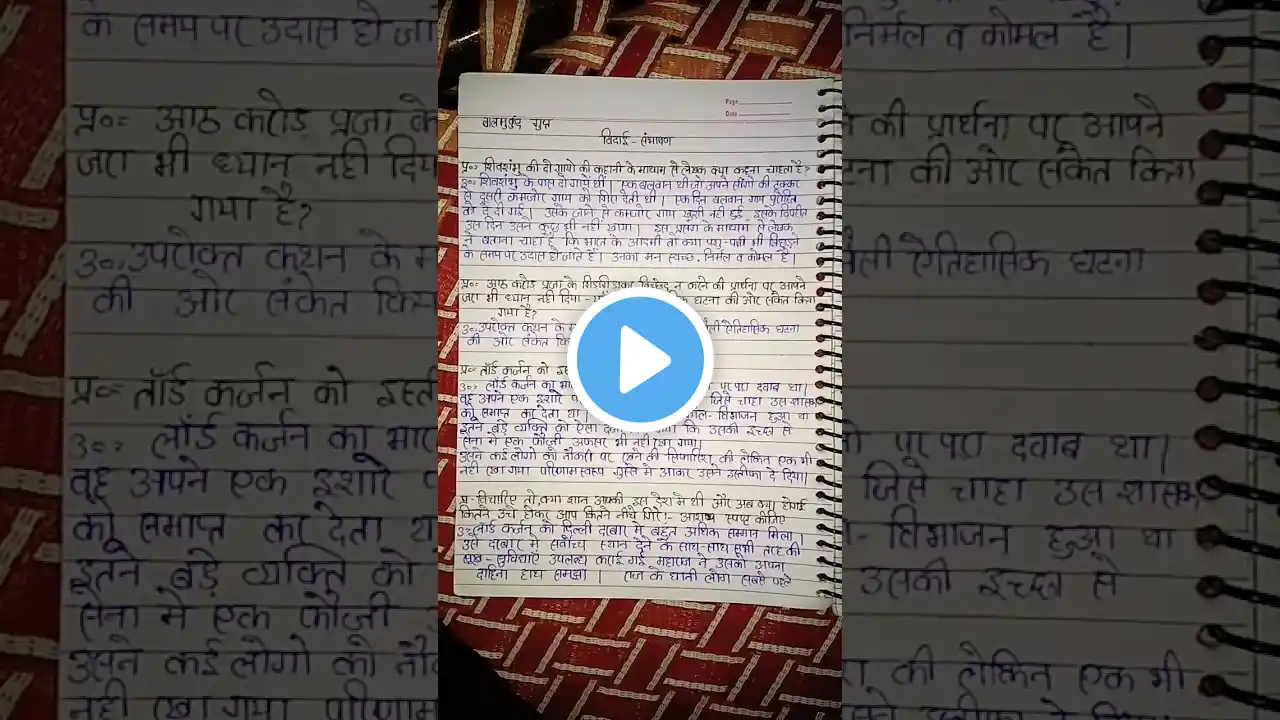 Page
Date
बालमुकुंद गुप्त
विदाई - संभाषण
प्र०= शिवशंभु की दो गायों की कहानी के माध्यम से लेखक क्या कहना चाहता है?
उ०= शिवशंभु के पास दो गाये थी। एक बलवान थी जो अपने सींगो की टक्कर
से दूसरी कमजोर गाय को गिरा देती थी। एक दिन बलवान गाय पुरोहित
को दे दी गई। उसके जाने से कमजोर गाय खुश नही हुई, इसके विपरीत
उस दिन उसने कुछ भी नही खाया। इस प्रसंग के माध्यम से लेखक
ने बताना चाहा है कि भारत के आदमी तो क्या पशु-पक्षी भी बिछुड़ने
के समय पर उदास हो जाते है। उनका मन स्वच्छ, निर्मल व कोमल है।
प्र०= आठ करोड प्रजा के गिड़गिड़ाकर विच्छेद न करने की प्रार्थना पर आपने
जरा भी ध्यान नही दिया - घटना की ओर संकेत किया
गया है?
उ०= उपरोक्त कथन के ऐतिहासिक घटना
की ओर संकेत किया
प्र०= लॉर्ड कर्जन को
उ०= लॉर्ड कर्जन का पर पूरा दवाब था।
वह अपने एक इशारे जिसे चाहा उस शासक
को समाप्त कर देता था। विभाजन हुआ था
इतने बड़े व्यक्ति को ऐसा कि उसकी इच्छा से
सेना मे एक फौजी अफसर भी नही रखा गया।
उसने कई लोगो को नौकरी पर रखने की सिफारिश की लेकिन एक भी
नही रखा गया परिणामस्वरूप गुस्से मे आकर उसने इस्तीफा दे दिया।
प्र०= विचारिए तो क्या शान आपकी इस देश मे थी और अब क्या हो गई
कितने उंचे होकर आप कितने नीचे गिरे - आशय स्पष्ट कीजिए
उ०= लॉर्ड कर्जन को दिल्ली दरबार मे बहुत अधिक सम्मान मिला।
उसे दरबार मे सर्वोच्च स्थान देने के साथ-साथ सभी तरह की
सुख - सुविधाएँ उपलब्ध कराई गई महाराज ने उसको अपना
दाहिना हाथ समझा। राज के धानी लोग सबसे पहले